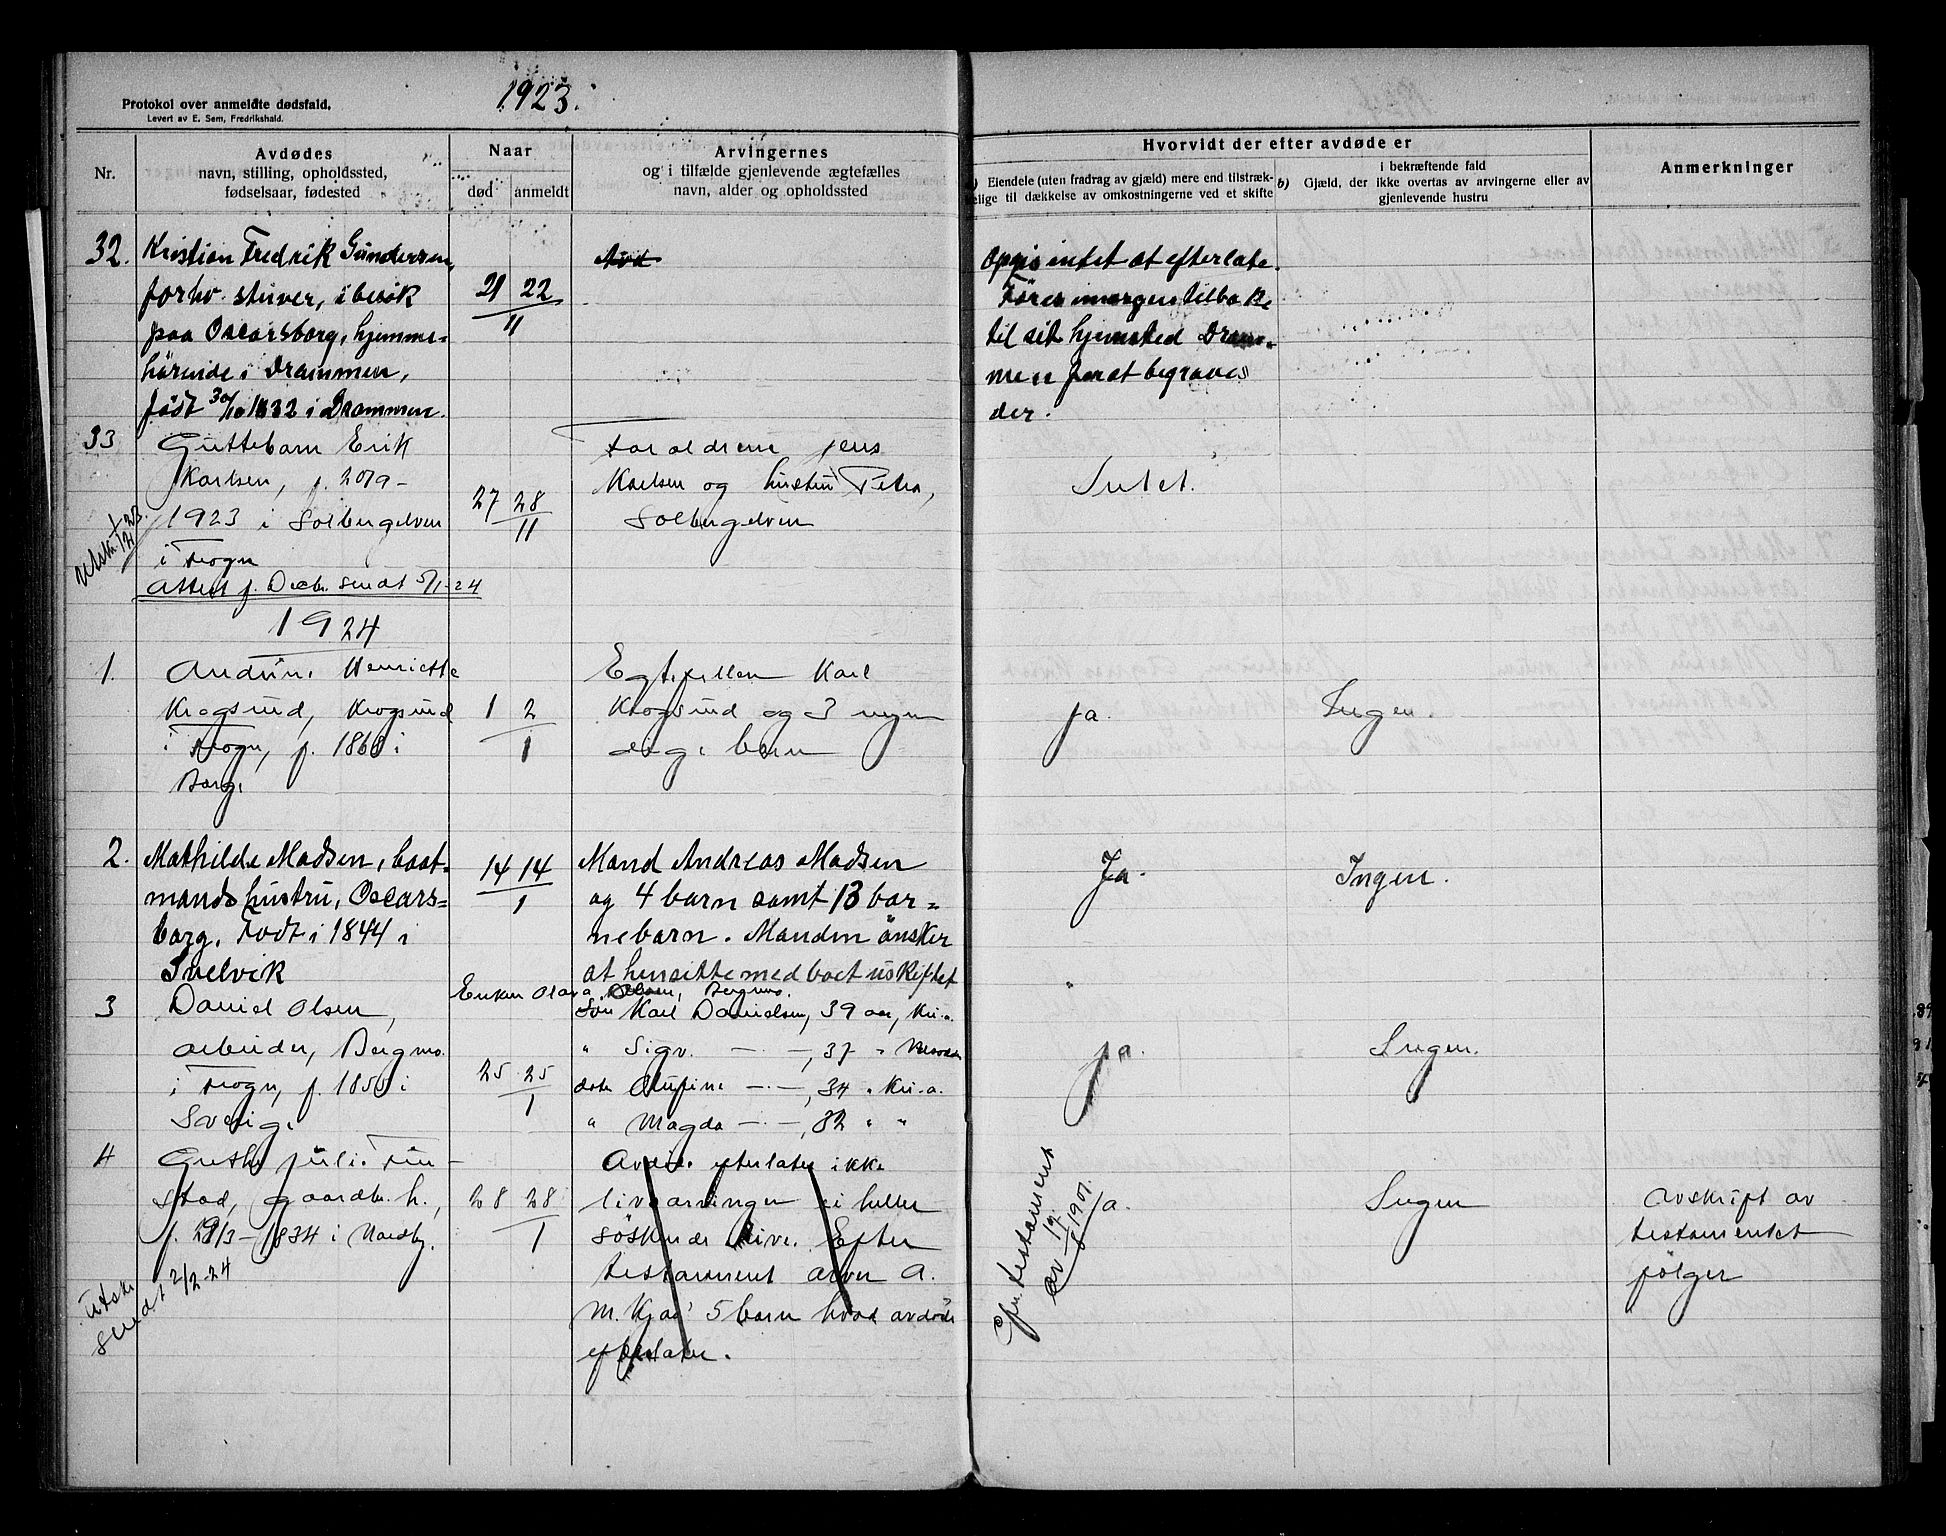 1923.
Protokol over anmeldte dødsfald.
Levert av E. Sem, Fredrikshald.
Nr.
Avdødes
navn, stilling, opholdssted,
fødselsaar, fødested
Naar
død
anmeldt
Arvingernes
og i tilfælde gjenlevende ægtefælles
navn, alder og opholdssted
Hvorvidt der efter avdøde er
Eiendele (uten fradrag av gjæld) mere end tilstræk-
elige til dækkelse av omkostningerne ved et skifte
b)
i bekræftende fald
Gjæld, der ikke overtas av arvingerne eller av
gjenlevende hustru
Anmerkninger
32.
Kristian Fredrik Gundersen,
forhv. stuver, i besøk
paa Oscarsborg, hjemme=
hörende i Drammen,
født 30/10 1832 i Drammen.
21 22
11
Avd
Opgis intet at efterlate.
Föres imorgen tilbake
til sit hjemsted Dram=
men for at begraves
der.
33
Guttebarn Erik
Karlsen, f. 20/9-
1923 i Solbergelven
i Frogn
27 28
11
Foraldrene Jens
Karlsen og hustru Petra,
Solbergelven
Intet.
Utskr. 1/12 23.
Attest f. Decbr. sendt 5/1-24
1924
1.
Andrine Henriette
Krogsund, Krogsund
i Frogn, f. 1860 i
Borge
1 2
1
Egtefellen Karl
Krogsund og 3 myn
dige barn
Ja.
Ingen.
2.
Mathilde Madsen, baat=
mands hustru, Oscars=
borg. Født i 1844 i
Svelvik
14 14
1
Mand Andreas Madsen
og 4 barn samt 13 bar=
nebarn. Manden ønsker
at hensitte med boet uskiftet
Ja.
Ingen.
3
David Olsen,
arbeider, Bergmo.
i Frogn, f. 1855 i
Sverige
25 25
1
Enken Olava Olsen, Bergmo.
Søn Karl Danielsen, 39 aar, Kr.a.
" Sigv. — · —, 37 "
datr — · —, 34 " Kr.a.
" Magda — · —, 32 " "
"
Ja.
Ingen.
4
Julie
stad, gaardbr. h.,
f. 29/3-1834 i Nordby.
28 28
1
Avdøde efterlater ikke
livsarvinger ei heller
söskende i live. Efter
testament arver A.
M. 5 barn hvad avdøde
efterlater.
Efter testament
av 19/8 1901.
Ja.
Ingen
Avskrift av
testamentet
følger
Utskr.
sendt 2/2-24